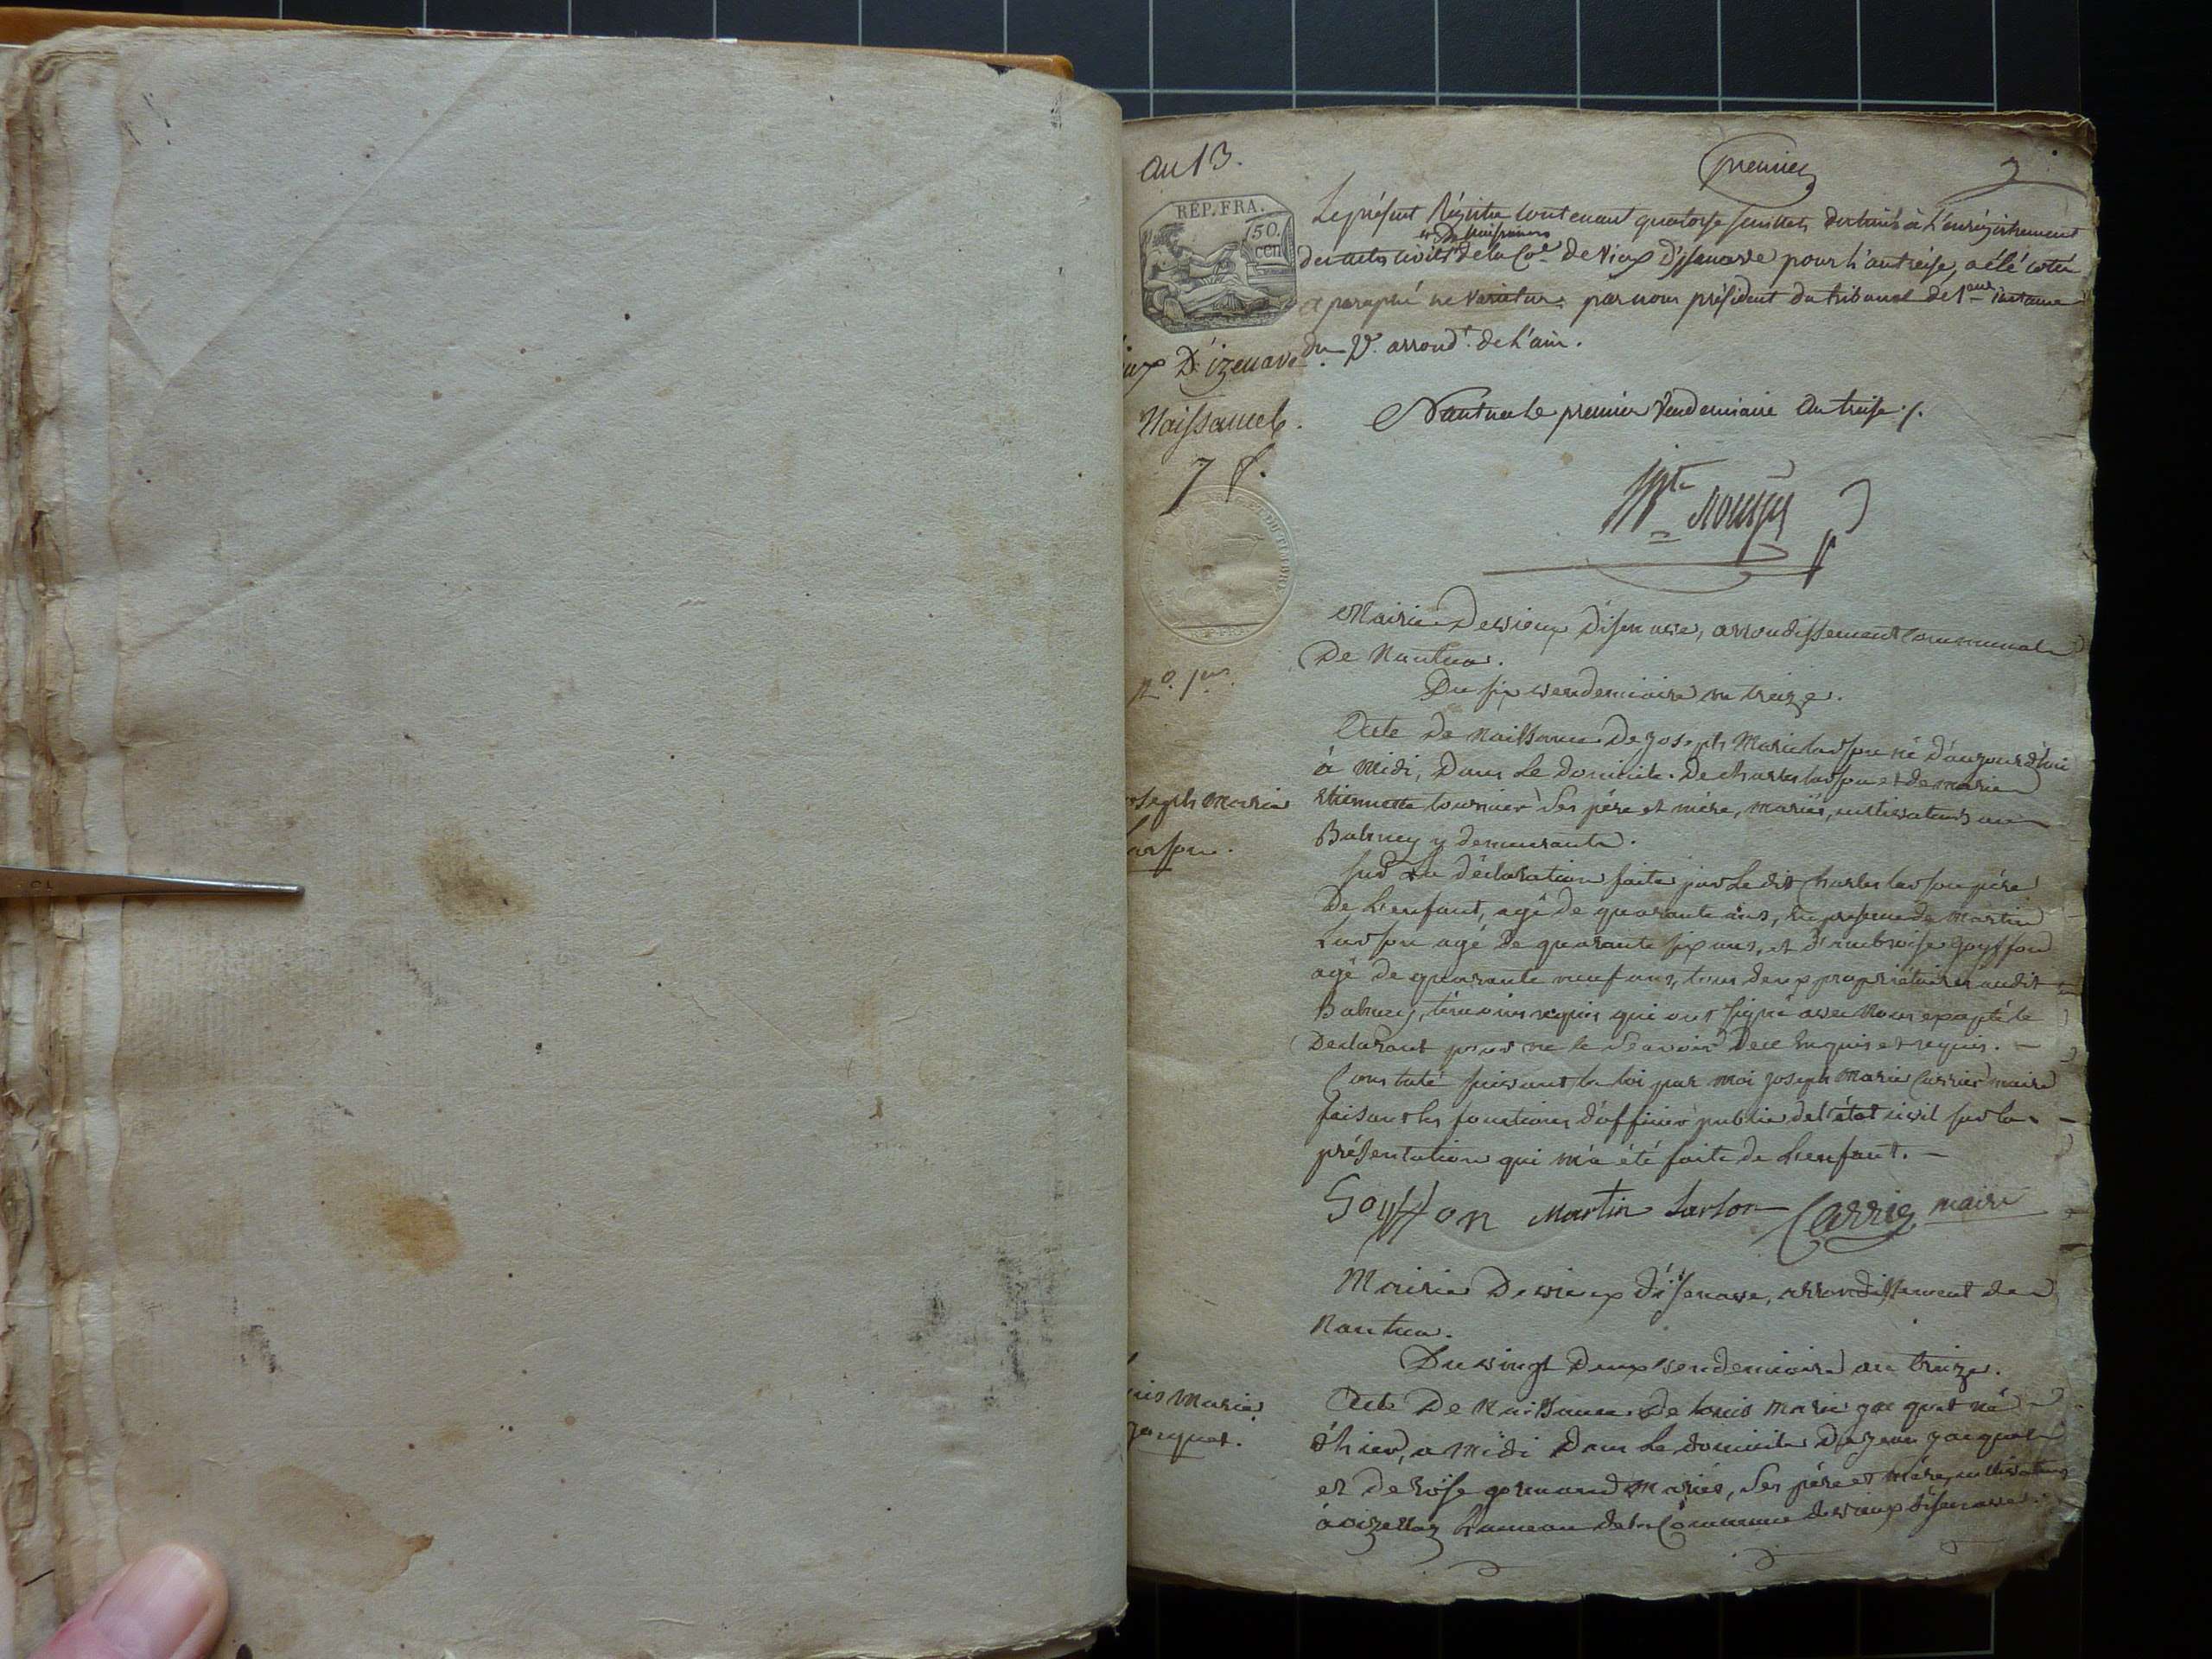 an 13.
premier
REP. FRA.
50
cen
Le présent Régistre contenant quatorse feuillets destinés à l'enrégistrement
de Naissances
des actes civils de la Cne de Vieux d'jsenave pour l'an treise, a été coté
& paraphé ne varietur par nous président du tribunal de 1ere instance
du 2e arrondt. de l'ain.
ux D'izenave
Naissances.
7 f.
Nantua le premier Vendemiaire an treise
REP. FRA.
Mairie de vieux d'isenave, arrondissement communal
De Nantua.
Du six vendemiaire an treize.
n.o 1er
Acte de naissance de joseph Marie Larson né d'aujourd'hui
à midi, dans le domicile de charles larson et de marie
étiennette tournier ses pére et mére, mariés, cultivateurs au
Balmey y demeurants.
oseph marie
arson.
sur la déclaration faite par le dit charles larson pére
De L'enfant, agé de quarante ans, en presence de martin
Larson agé de quarante six ans, et d'ambroise goyffon
agé de quarante neuf ans, tous deux propriétaires audit
Balmey, témoins requis qui ont signé avec nous excepté le
Declarant pour ne le sçavoir de ce enquis et requis. —
Constaté suivant la loi par moi joseph marie Carrier maire
faisant les fonctions d'officier public de l'état civil sur la —
présentation qui m'a été faite de L'enfant. —
Goyffon Martin Larson Carrier maire
Mairie De vieux d'isenave, arrondissement de
Nantua.
Du vingt deux vendemiaire an treize.
uis marie
jacquet.
Acte De Naissance de louis marie jacquet né
d'hier, a midi dans le domicile de jean jacquet
et de rose mariés, ses pére et mére, cultivateurs
à oizellaz hameau de la Commune de vieux d'isenave.